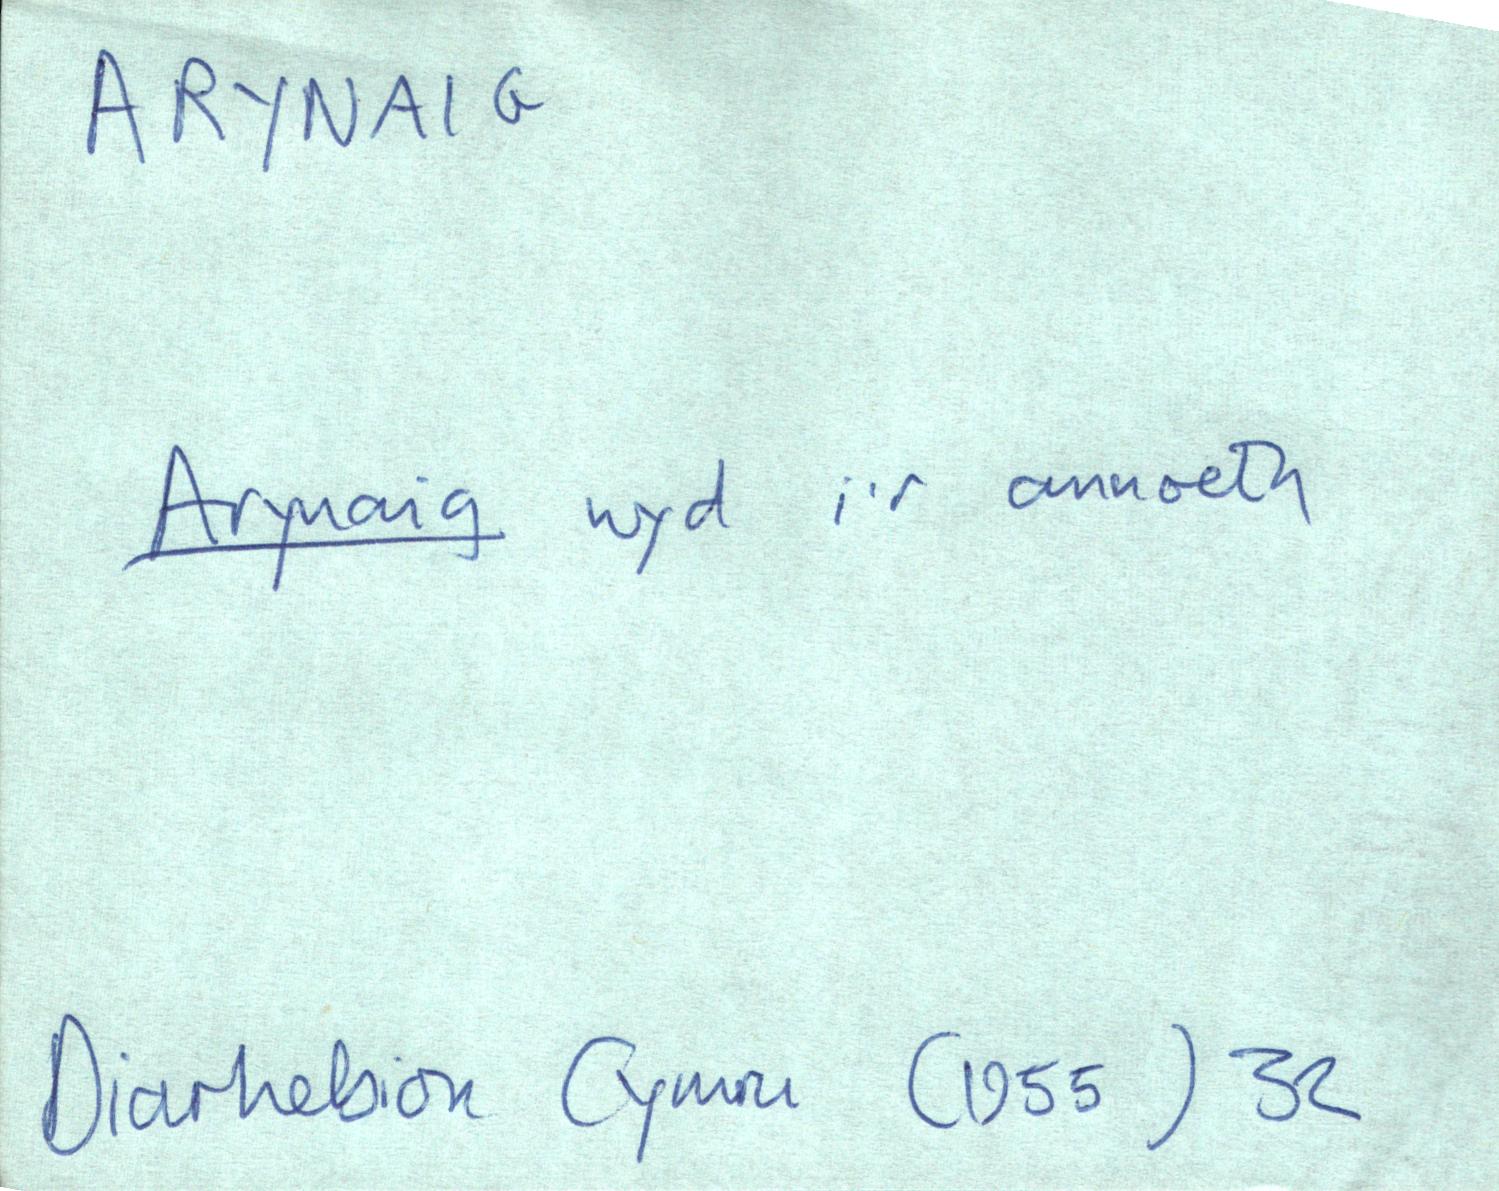 ARYNAIG
Arynaig wyd i'r annoeth
Diarhebion Cymru (1955) 32